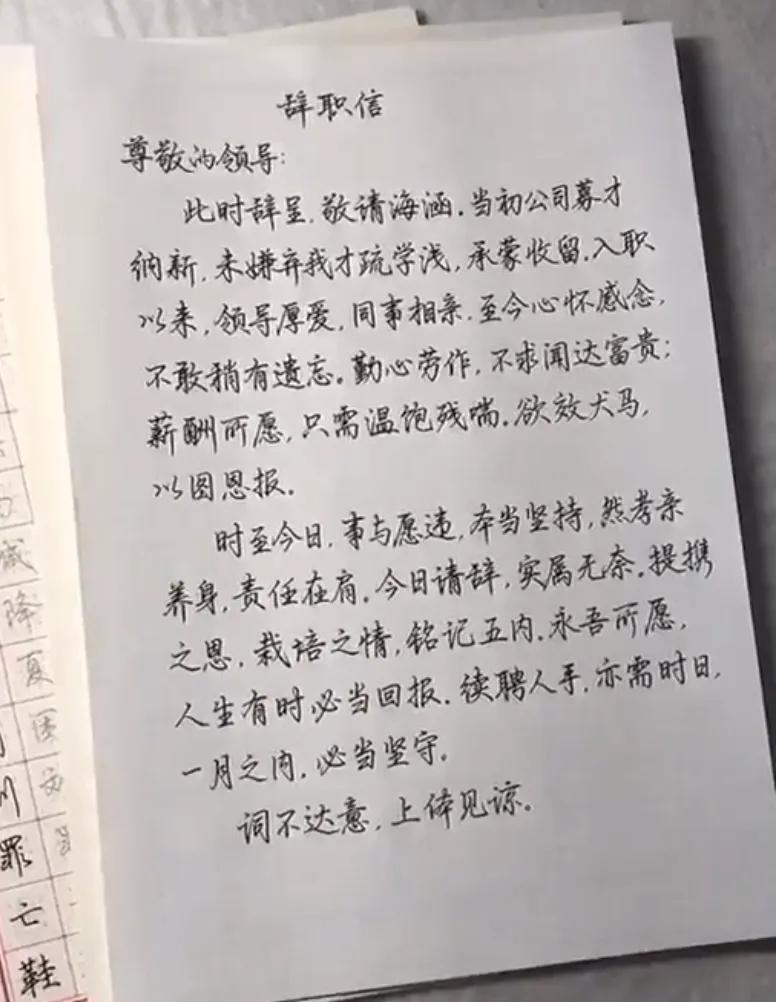 辞职信
尊敬的领导:
此时辞呈,敬请海涵.当初公司募才
纳新,未嫌弃我才疏学浅,承蒙收留.入职
以来,领导厚爱,同事相亲.至今心怀感念,
不敢稍有遗忘。勤心劳作,不求闻达富贵;
薪酬所愿,只需温饱残喘.欲效犬马,
以图恩报。
时至今日,事与愿违,本当坚持,然孝亲
养身,责任在肩.今日请辞,实属无奈.提携
之恩,栽培之情,铭记五内.永吾所愿,
人生有时必当回报.续聘人手,亦需时日,
一月之内,必当坚守。
词不达意,上体见谅。
降
夏
罪
亡
鞋